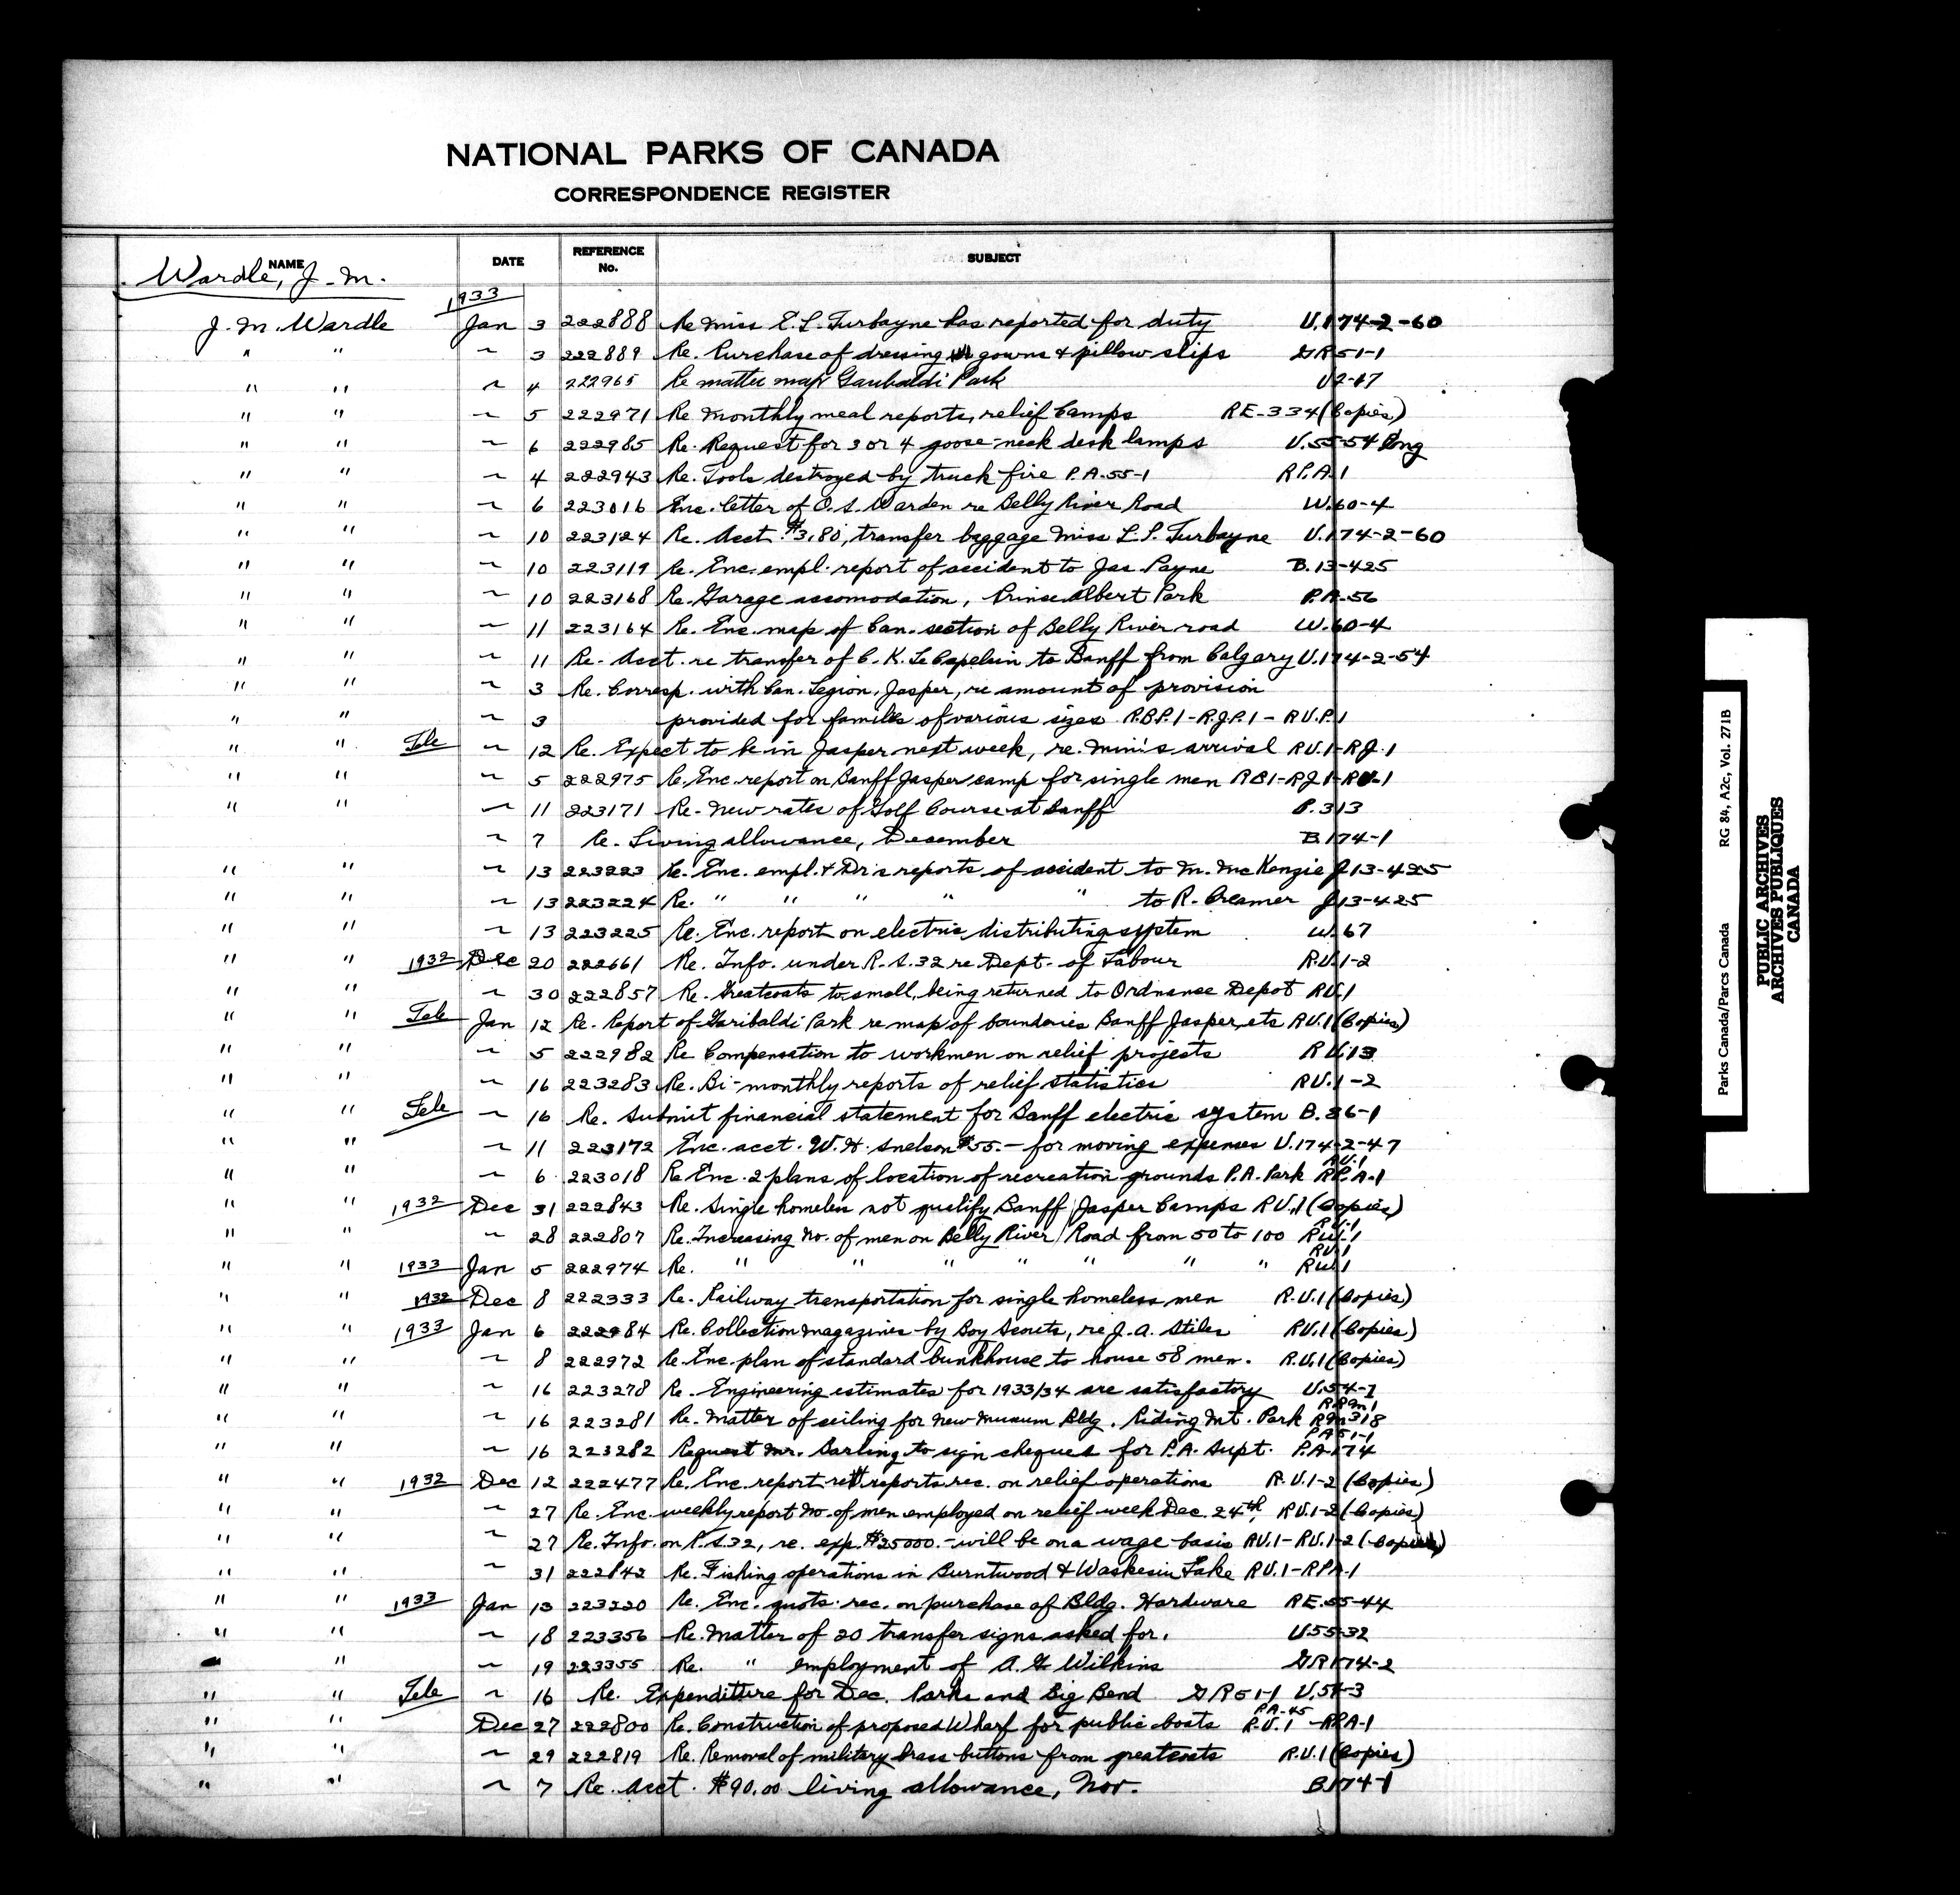 NATIONAL PARKS OF CANADA
CORRESPONDENCE REGISTER
NAME DATE REFERENCE No. SUBJECT
Wardle, J. M.
1933
J. M. Wardle Jan 3 222888 Re Miss E. L. Turbayne has reported for duty U.174-2-60
" " ~ 3 222889 Re. Purchase of dressing gowns & pillow slips GR51-1
" " ~ 4 222965 Re matter map Garibaldi Park U2-17
" " ~ 5 222971 Re monthly meal reports, relief Camps RE-334 (Copies)
" " ~ 6 222985 Re. Request for 3 or 4 goose-neck desk lamps U.55-54 Eng
" " ~ 4 222943 Re. Tools destroyed by truck fire P.A.55-1 RP.A.1
" " ~ 6 223016 Enc. letter of O. S. Warden re Belly River Road W.60-4
" " ~ 10 223124 Re. Acct. $3.80, transfer baggage Miss L. P. Turbayne U.174-2-60
" " ~ 10 223119 Re. Enc. empl. report of accident to Jas. Payne B.13-425
" " ~ 10 223168 Re. Garage accomodation, Prince Albert Park P.A-56
" " ~ 11 223164 Re. Enc. map of Can. section of Belly River road W.60-4
" " ~ 11 Re- Acct. re transfer of C. K. LeCapelain to Banff from Calgary U.174-2-54
" " ~ 3 Re. Corresp. with Can. Legion, Jasper, re amount of provision
" " ~ 3 provided for families of various sizes R.B.P.1-R.J.P.1-RU.P.1
" " Tele ~ 12 Re. Expect to be in Jasper next week, re. Min's arrival RU.1-RJ.1
" " ~ 5 222975 Re. Enc. report on Banff Jasper camp for single men RB1-RJ1-RU-1
" " ~ 11 223171 Re- New rates of Golf Course at Banff B.313
~ 7 Re. Living allowance, December B174-1
" " ~ 13 223223 Re. Enc. empl. & Dr's reports of accident to M. McKenzie J13-425
" " ~ 13 223224 Re. " " " " " to R. Creamer J13-425
" " ~ 13 223225 Re. Enc. report on electric distributing system W.67
" " 1932 Dec 20 222661 Re. Info. under P.S.32 re Dept. of Labour R.U.1-2
" " ~ 30 222857 Re. Greatcoats to small, being returned to Ordnance Depot RU.1
" " Tele Jan 12 Re. Report of Garibaldi Park re map of bounderies Banff Jasper, etc RU.1 (Copies)
" " ~ 5 222982 Re Compensation to workmen on relief projects RU.13
" " ~ 16 223283 Re. Bi-monthly reports of relief statistics RU.1-2
" " Tele ~ 16 Re. Submit financial statement for Banff electric system B.36-1
" " ~ 11 223172 Enc. acct. W. H. Snelson $55.- for moving expenses U.174-2-47
RU.1
" " ~ 6 223018 Re Enc. 2 plans of location of recreation grounds P.A. Park RP.A-1
" " 1932 Dec 31 222843 Re. Single homeless not qualify Banff Jasper Camps RU.1 (Copies)
RU.1
" " ~ 28 222807 Re. Increasing no. of men on Belly River Road from 50 to 100 RW.1
RU.1
" " 1933 Jan 5 222974 Re. " " " " " " " RW.1
" " 1932 Dec 8 222333 Re. Railway transportation for single homeless men R.U.1 (Copies)
" " 1933 Jan 6 222984 Re. Collection magazines by Boy Scouts, re J. A. Stiles RU.1 (Copies)
" " ~ 8 222972 Re. Enc. plan of standard bunkhouse to house 58 men. R.U.1 (Copies)
" " ~ 16 223278 Re. Engineering estimates for 1933/34 are satisfactory U.54-1
RRM1
" " ~ 16 223281 Re. Matter of ceiling for new Museum Bldg, Riding Mt. Park RM318
PA51-1
" " ~ 16 223282 Request Mr. Sarling to sign cheques for P.A. Supt. P.A-174
" " 1932 Dec 12 222477 Re. Enc. report re reports rec. on relief operations R.U.1-2 (Copies)
" " ~ 27 Re. Enc. weekly report no. of men employed on relief week Dec. 24th. RU.1-2 (Copies)
" " ~ 27 Re. Info. on P.S.32, re. exp. $25000.- will be on a wage basis RU.1-RU.1-2 (Copies)
" " ~ 31 222842 Re. Fishing operations in Burntwood & Waskesiu Lake RU.1-RPA-1
" " 1933 Jan 13 223220 Re. Enc. quots. rec. on purchase of Bldg. Hardware RE.55-44
" " ~ 18 223356 Re. Matter of 20 transfer signs asked for. U.55-32
" ~ 19 223355 Re. " employment of A. G. Wilkins GR174-2
" " Tele ~ 16 Re. Expenditure for Dec. Parks and Big Bend GR51-1 U.54-3
PA-45
" " Dec 27 222800 Re. Construction of proposed Wharf for public boats R.U.1-RPA-1
" " ~ 29 222819 Re. Removal of military brass buttons from greatcoats R.U.1 (Copies)
" " ~ 7 Re. Acct. $90.00 living allowance, Nov. B174-1
Parks Canada/Parcs Canada RG 84, A2c, Vol. 271B
PUBLIC ARCHIVES
ARCHIVES PUBLIQUES
CANADA